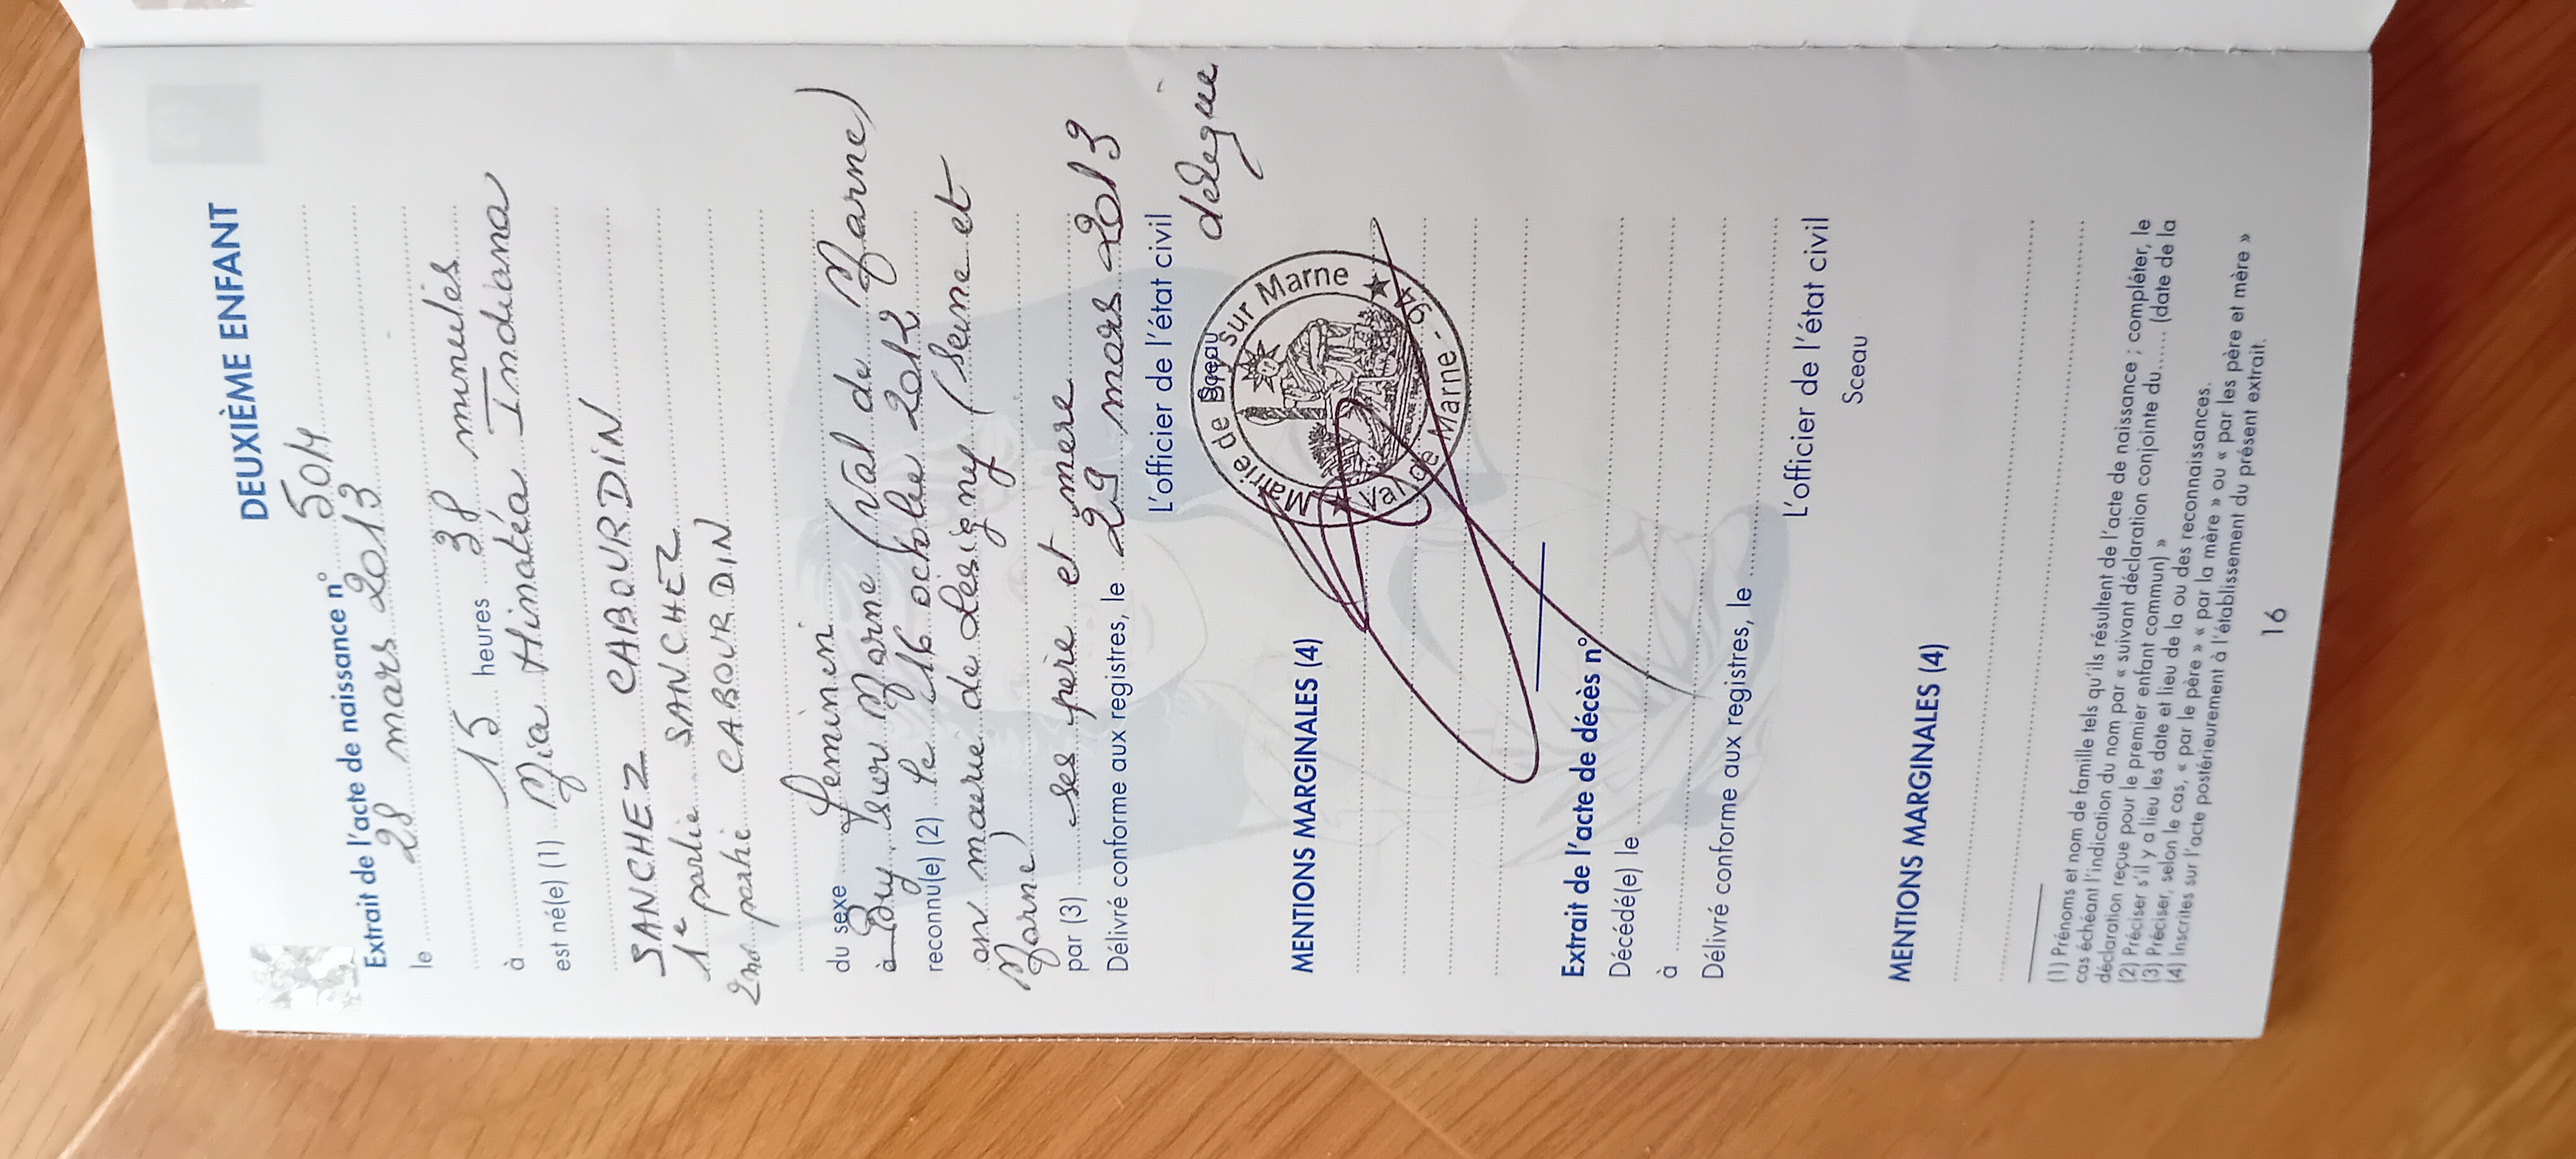 DEUXIÈME ENFANT
Extrait de l'acte de naissance n° 504
le 28 mars 2013
à 15 heures 38 minutes
est né(e) (1) Mia Hinatéa Indiana
SANCHEZ CABOURDIN
1e partie SANCHEZ
2nd partie CABOURDIN
du sexe féminin
à Bry sur Marne (Val de Marne)
reconnu(e) (2) le 16 octobre 2012
en mairie de Lésigny (Seine et
Marne)
par (3) ses père et mère
Délivré conforme aux registres, le 29 mars 2013
L'officier de l'état civil
délégué
Sceau
Mairie de Bry sur Marne ★ Val de Marne - 94 ★
MENTIONS MARGINALES (4)
Extrait de l'acte de décès n°
Décédé(e) le
à
Délivré conforme aux registres, le
L'officier de l'état civil
Sceau
MENTIONS MARGINALES (4)
(1) Prénoms et nom de famille tels qu'ils résultent de l'acte de naissance ; compléter, le
cas échéant l'indication du nom par « suivant déclaration conjointe du...... (date de la
déclaration reçue pour le premier enfant commun) »
(2) Préciser s'il y a lieu les date et lieu de la ou des reconnaissances.
(3) Préciser, selon le cas, « par le père » « par la mère » ou « par les père et mère »
(4) Inscrites sur l'acte postérieurement à l'établissement du présent extrait.
16